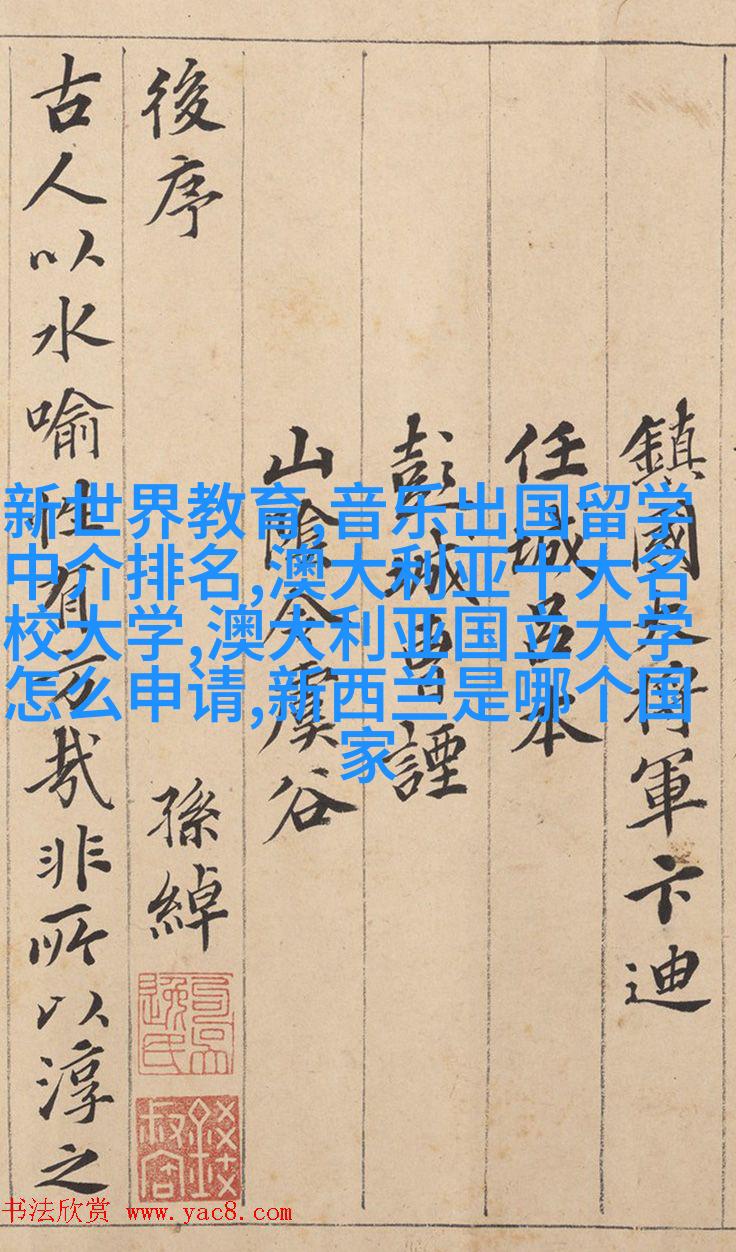 鎮國大將軍卞迪
任城呂本
彭城曹諲
山陰令虞谷
後序
孫綽
古人以水喻性有哉非所以淳之
新世界教育,音乐出国留学
中介排名,澳大利亚十大名
校大学,澳大利亚国立大学
怎么申请,新西兰是哪个国
家
书法欣赏 www.yac8.com